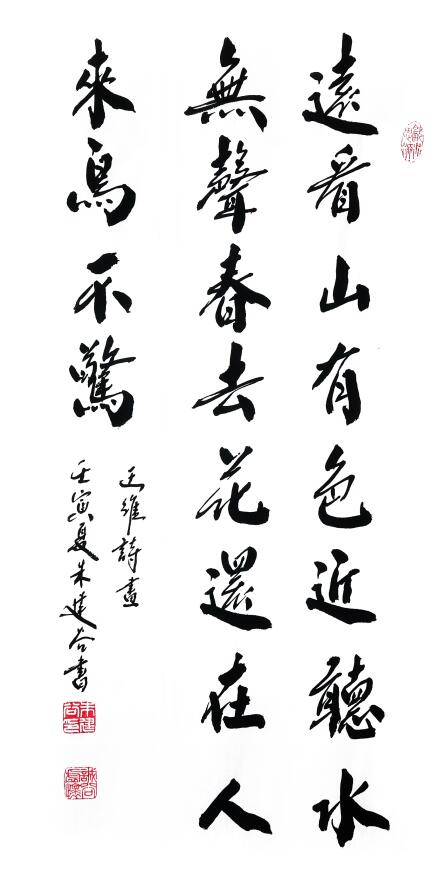 遠看山有色近聽水
無聲春去花還在人
來鳥不驚
王維詩畫
壬寅夏朱建谷書